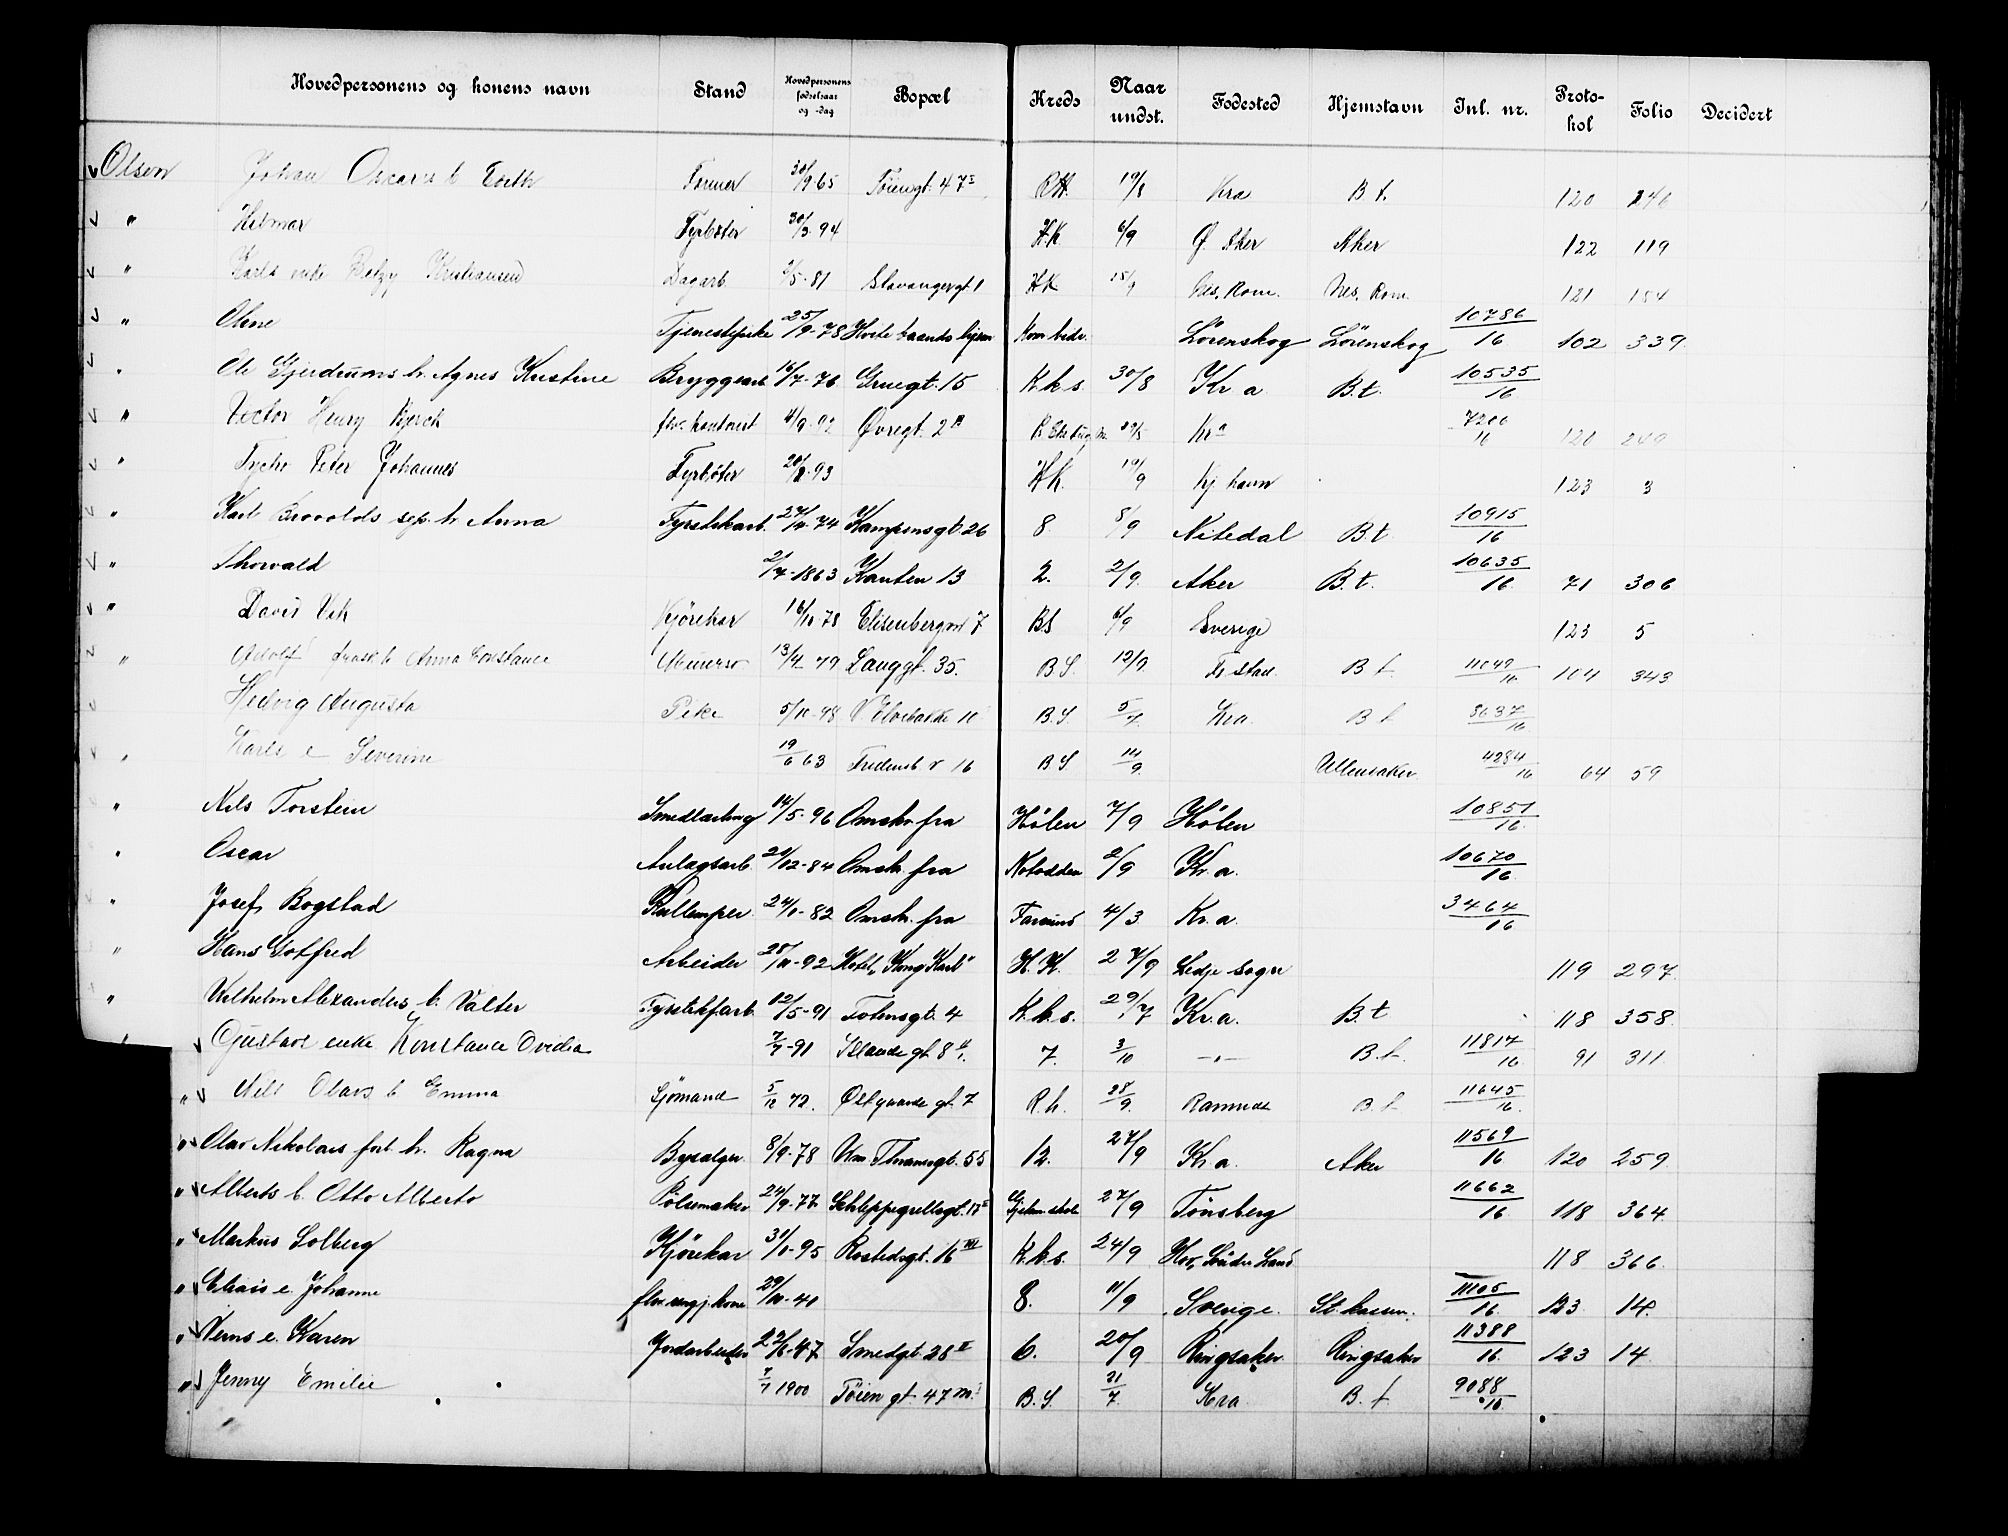 Hovedpersonens og konens navn Stand Hovedpersonens fødselsaar og -dag Bopæl Kreds Naar undst. Fødested Hjemstavn Inl. nr. Protokol Folio Decidert
Olsen Johan Oscars b Edith Former 30/9-65 Töiengt. 47 R.H. 19/8 Kra B t. 120 246
" Hilmar Fyrböter 30/3-94 H.K. 6/9 Ø. Aker Aker 122 119
" Karls enke Betzy Kristiansen Dagarb. /5-81 Stavangergt 1 H.K. 15/9 Nes, Rom. Nes, Rom. 121 154
" Oline Tjenestepike 25/9-78 Hvite baands hjem Kom. Lörenskog Lörenskog 10786/16 102 339
" Ole Gjerdrums h. Agnes Kristine Bryggearb. 16/7-76 Gruegt. 15 K.k.s. 30/8 Kr.a. B.t. 10535/16
" Victor Henry Bjerck fhv. kontorist 4/9-92 Øvregt. 2 B 29/5 Kra 7206/16 120 249
" Tycho Peter Johannes Fyrböter 20/8-93 H.K. 19/9 Kj. havn 123 3
" Karl Brovolds sep. h. Anna Fyrstikarb. 27/4-74 Kampensgt. 26 8. 8/9 Nitedal B.t. 10915/16
" Thorvald 21/7-1863 Kanten 13 2. 2/9. Aker B.t. 10635/16 71 306
" David Vik Kjörekar 16/10 78 Elisenbergvn 7 B.S. 6/9 Sverige 123 5
" Adolf frask. b Anna Constance Murersv 13/4 79 Langgt. 35. B.S. 12/9. Fr.stad. B t. 11049/16 104 343
Hedvig Augusta Pike 5/10-98 V Elvebakke 10 B.S. 5/7. Kra. B t. 8637/16
" Karls e Severine 19/6 63 Fredensb v 16 B.S. 14/9. Ullensaker. 4284/16 64 59
" Nils Torstein Smedlærling 14/5-96 Omsk. fra Hölen 7/9 Hölen 10851/16
" Oscar Anlægsarb. 21/12-84 Omsk. fra Notodden 2/9 Kr.a. 10670/16
" Josef Bogstad Kullemper 24/1-82 Omsk. fra Farsund 4/3 Kr.a. 3464/16
" Hans Gotfred Arbeider 28/11-92 Hotel "Kong Karl" H.K. 27/9 Ledje sogn 119 297
" Vilhelm Alexanders b. Valter Fyrstikfarb. 12/5-91 Totensgt. 4 K.k.s. 29/7 Kr.a. B.t 118 358.
" Gustavs enke Konstance Ovidia 7/7-91 Islands gt. 8 II 7. 3/10 -"- B.t. 11817/16 91 311
" Nils Olavs b Emma Sjömand 5/12 72. Østgaards gt. 7 R.h. 28/9. Ramnes B.t. 11645/16
" Olav Nikolais forl. h. Ragna Bysælger 8/9-78 Vm. Thranesgt. 55 12. 27/9 Kr.a. Aker 11569/16 120 259
" Alberts b. Otto Alberto Pölsemaker 24/9-77. Schleppegrellsgt. 17 II Gjelm. skole 27/9 Tönsberg 11662/16 118 364
" Markus Solberg Kjörekar 31/1-95 Rostedsgt. 16 III K.k.s. 24/9 Hov, Söndre Land 118 366
" Elias e. Johanne fhv. rengj. kone 29/11-40 8. 11/9 Sverige. St. kassen. 11105/16 123. 14.
" Nerns e. Karen Jordarbeider 22/6-47 Smedgt. 28 II 6. 20/9 Ringsaker Ringsaker 11388/16 123 14
" Jenny Emilie 7/7 1900 Töien gt. 47 B.S. 21/7. Kra. B.t. 9088/16